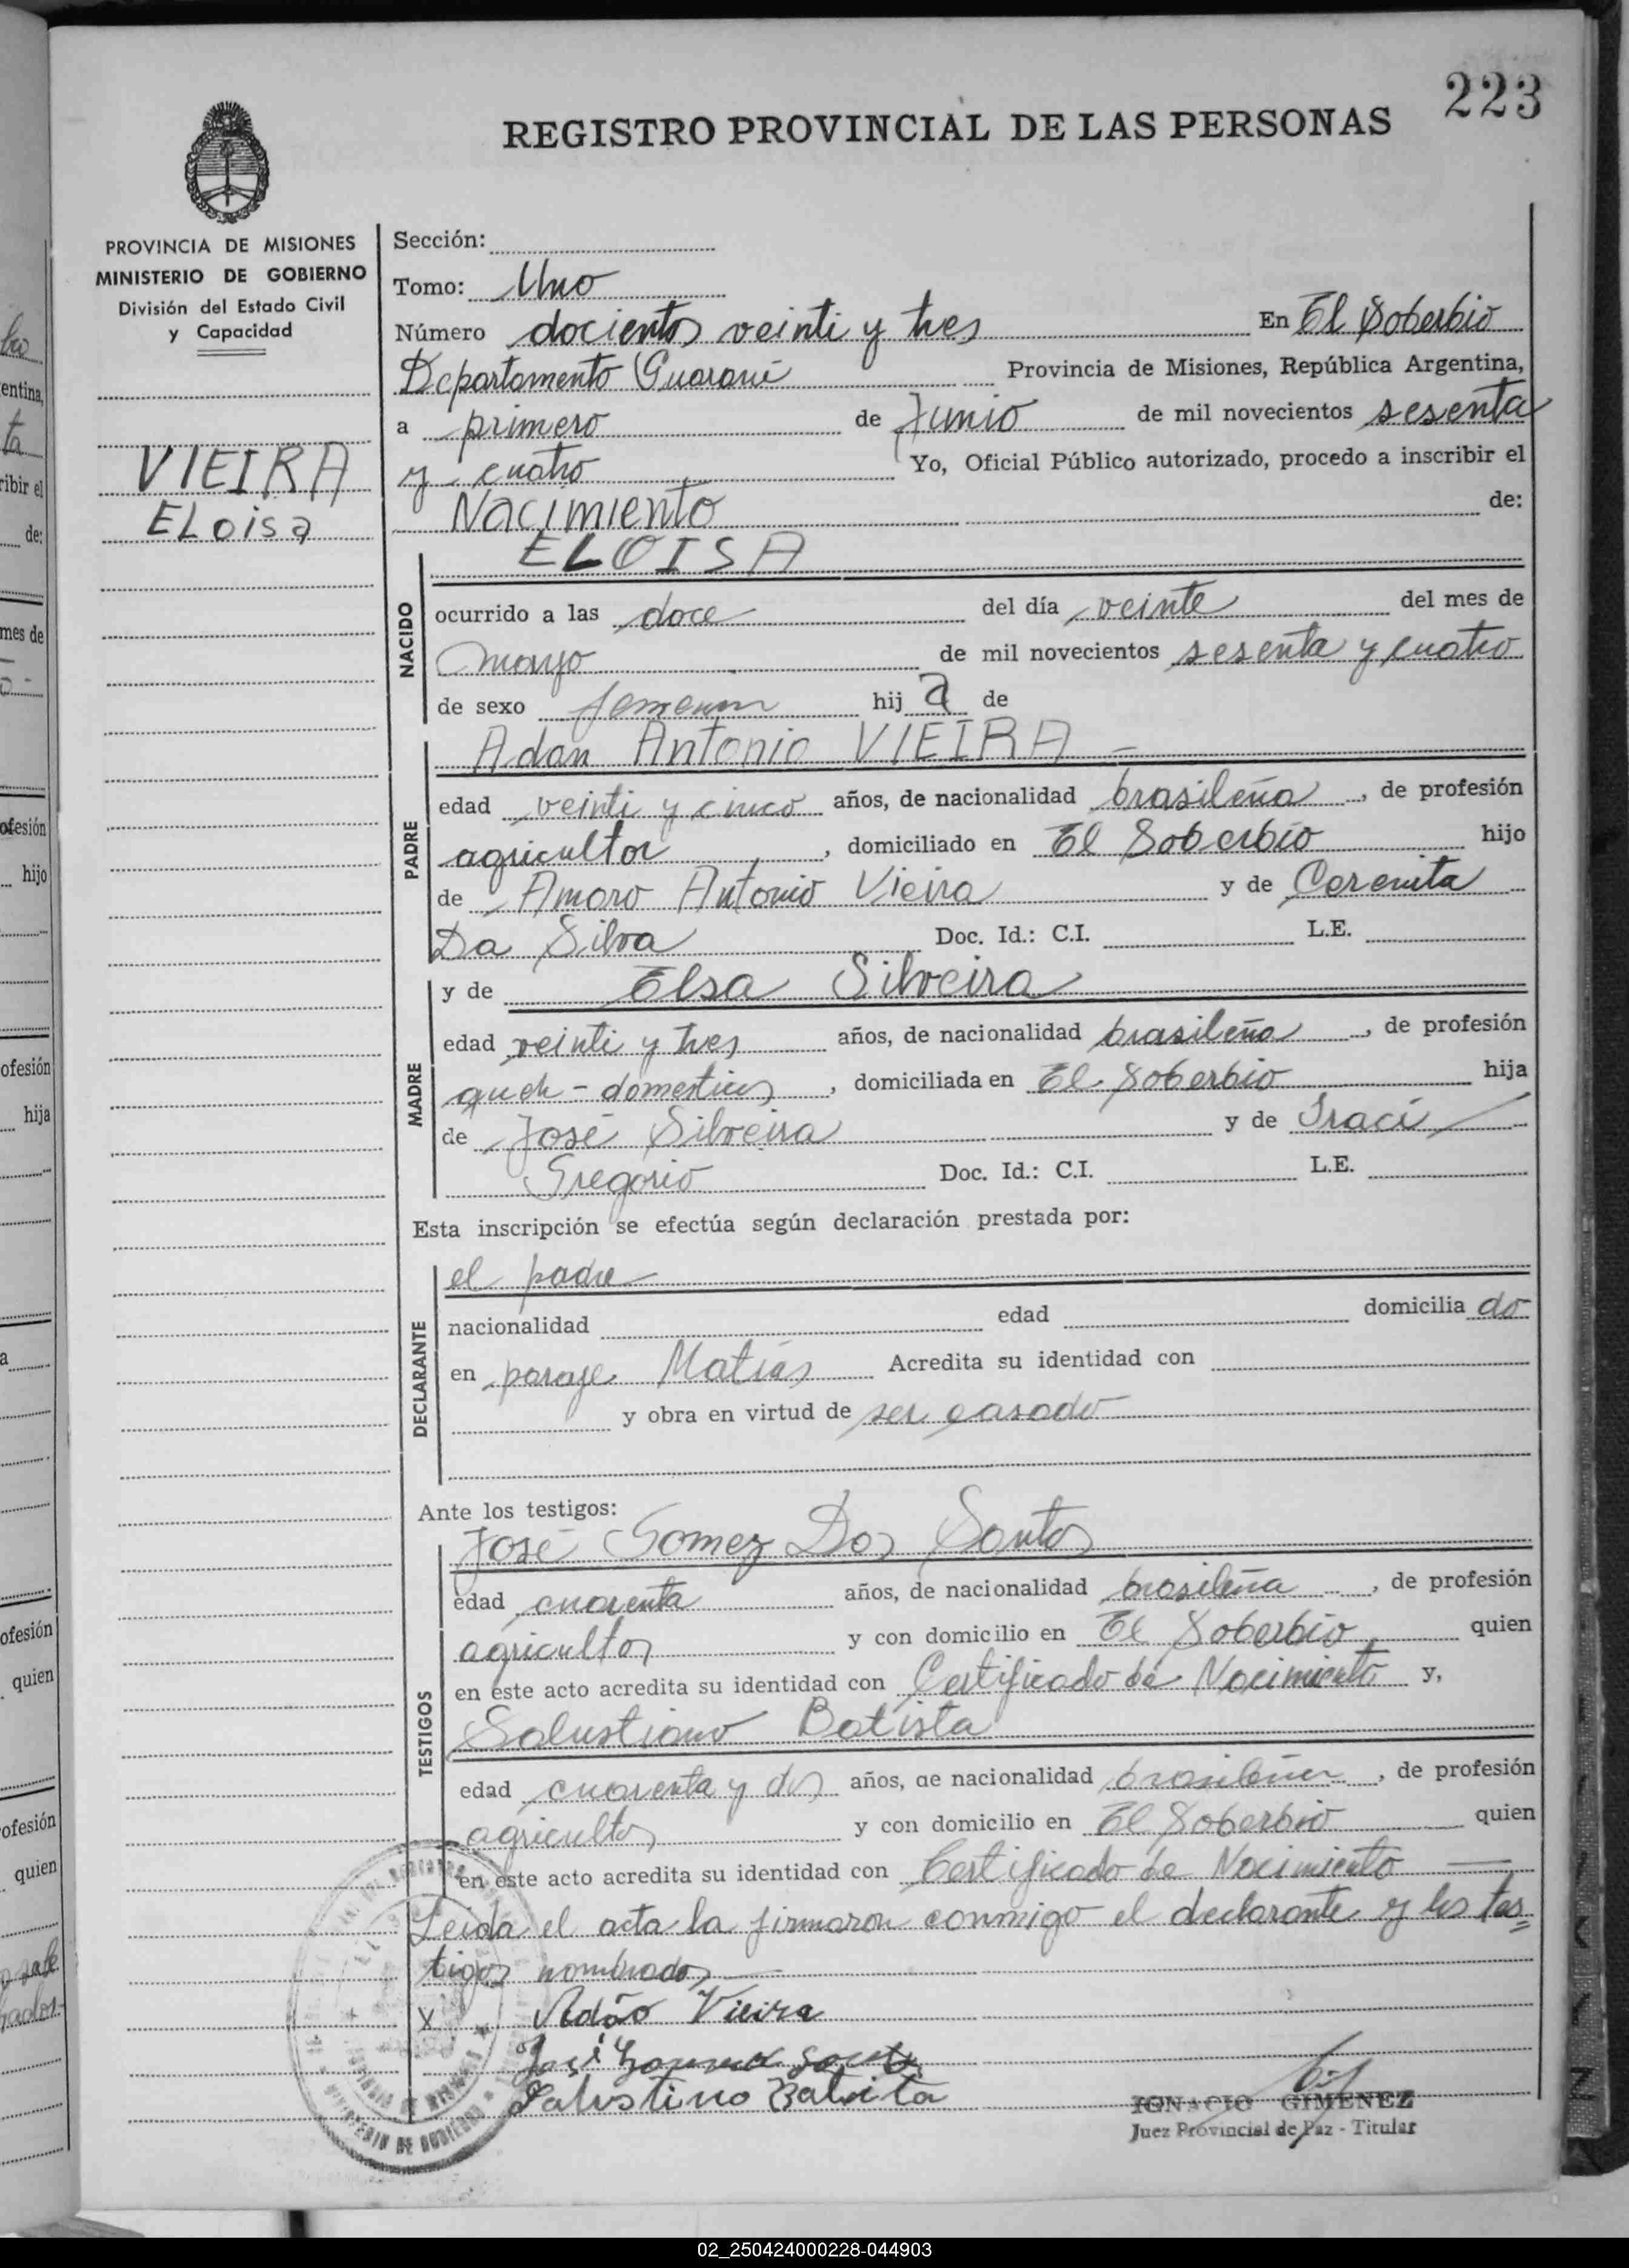 223
REGISTRO PROVINCIAL DE LAS PERSONAS
PROVINCIA DE MISIONES
MINISTERIO DE GOBIERNO
División del Estado Civil
y Capacidad
VIEIRA
ELoisa
Sección:
Tomo: Uno
Número docientos veinti y tres En El Soberbio
Departamento Guaraní Provincia de Misiones, República Argentina,
a primero de Junio de mil novecientos sesenta
y cuatro Yo, Oficial Público autorizado, procedo a inscribir el
Nacimiento de:
ELOISA
NACIDO
ocurrido a las doce del día veinte del mes de
mayo de mil novecientos sesenta y cuatro
de sexo hij a de
Adan Antonio VIEIRA -
PADRE
edad veinti y cinco años, de nacionalidad brasileña, de profesión
agricultor, domiciliado en El Soberbio hijo
de Amaro Antonio Vieira y de Cerenita
Da Silva Doc. Id.: C.I. L.E.
y de Elsa Silveira
MADRE
edad veinti y tres años, de nacionalidad brasileña, de profesión
domesticos, domiciliada en El Soberbio hija
de José Silveira y de Iraci
Gregorio Doc. Id.: C.I. L.E.
Esta inscripción se efectúa según declaración prestada por:
el padre
DECLARANTE
nacionalidad edad domicilia do
en paraje Matías Acredita su identidad con
y obra en virtud de ser casado
Ante los testigos:
José Gomez Dos Santos
TESTIGOS
edad cuarenta años, de nacionalidad brasileña, de profesión
agricultor y con domicilio en El Soberbio quien
en este acto acredita su identidad con Certificado de Nacimiento y,
Salustiano Batista
edad cuarenta y dos años, de nacionalidad brasileña, de profesión
agricultor y con domicilio en El Soberbio quien
en este acto acredita su identidad con Certificado de Nacimiento
Leida el acta la firmaron conmigo el declarante y los tes=
tigos nombrados
X Adão Vieira
IGNACIO GIMENEZ
Juez Provincial de Paz - Titular
02_250424000228-044903